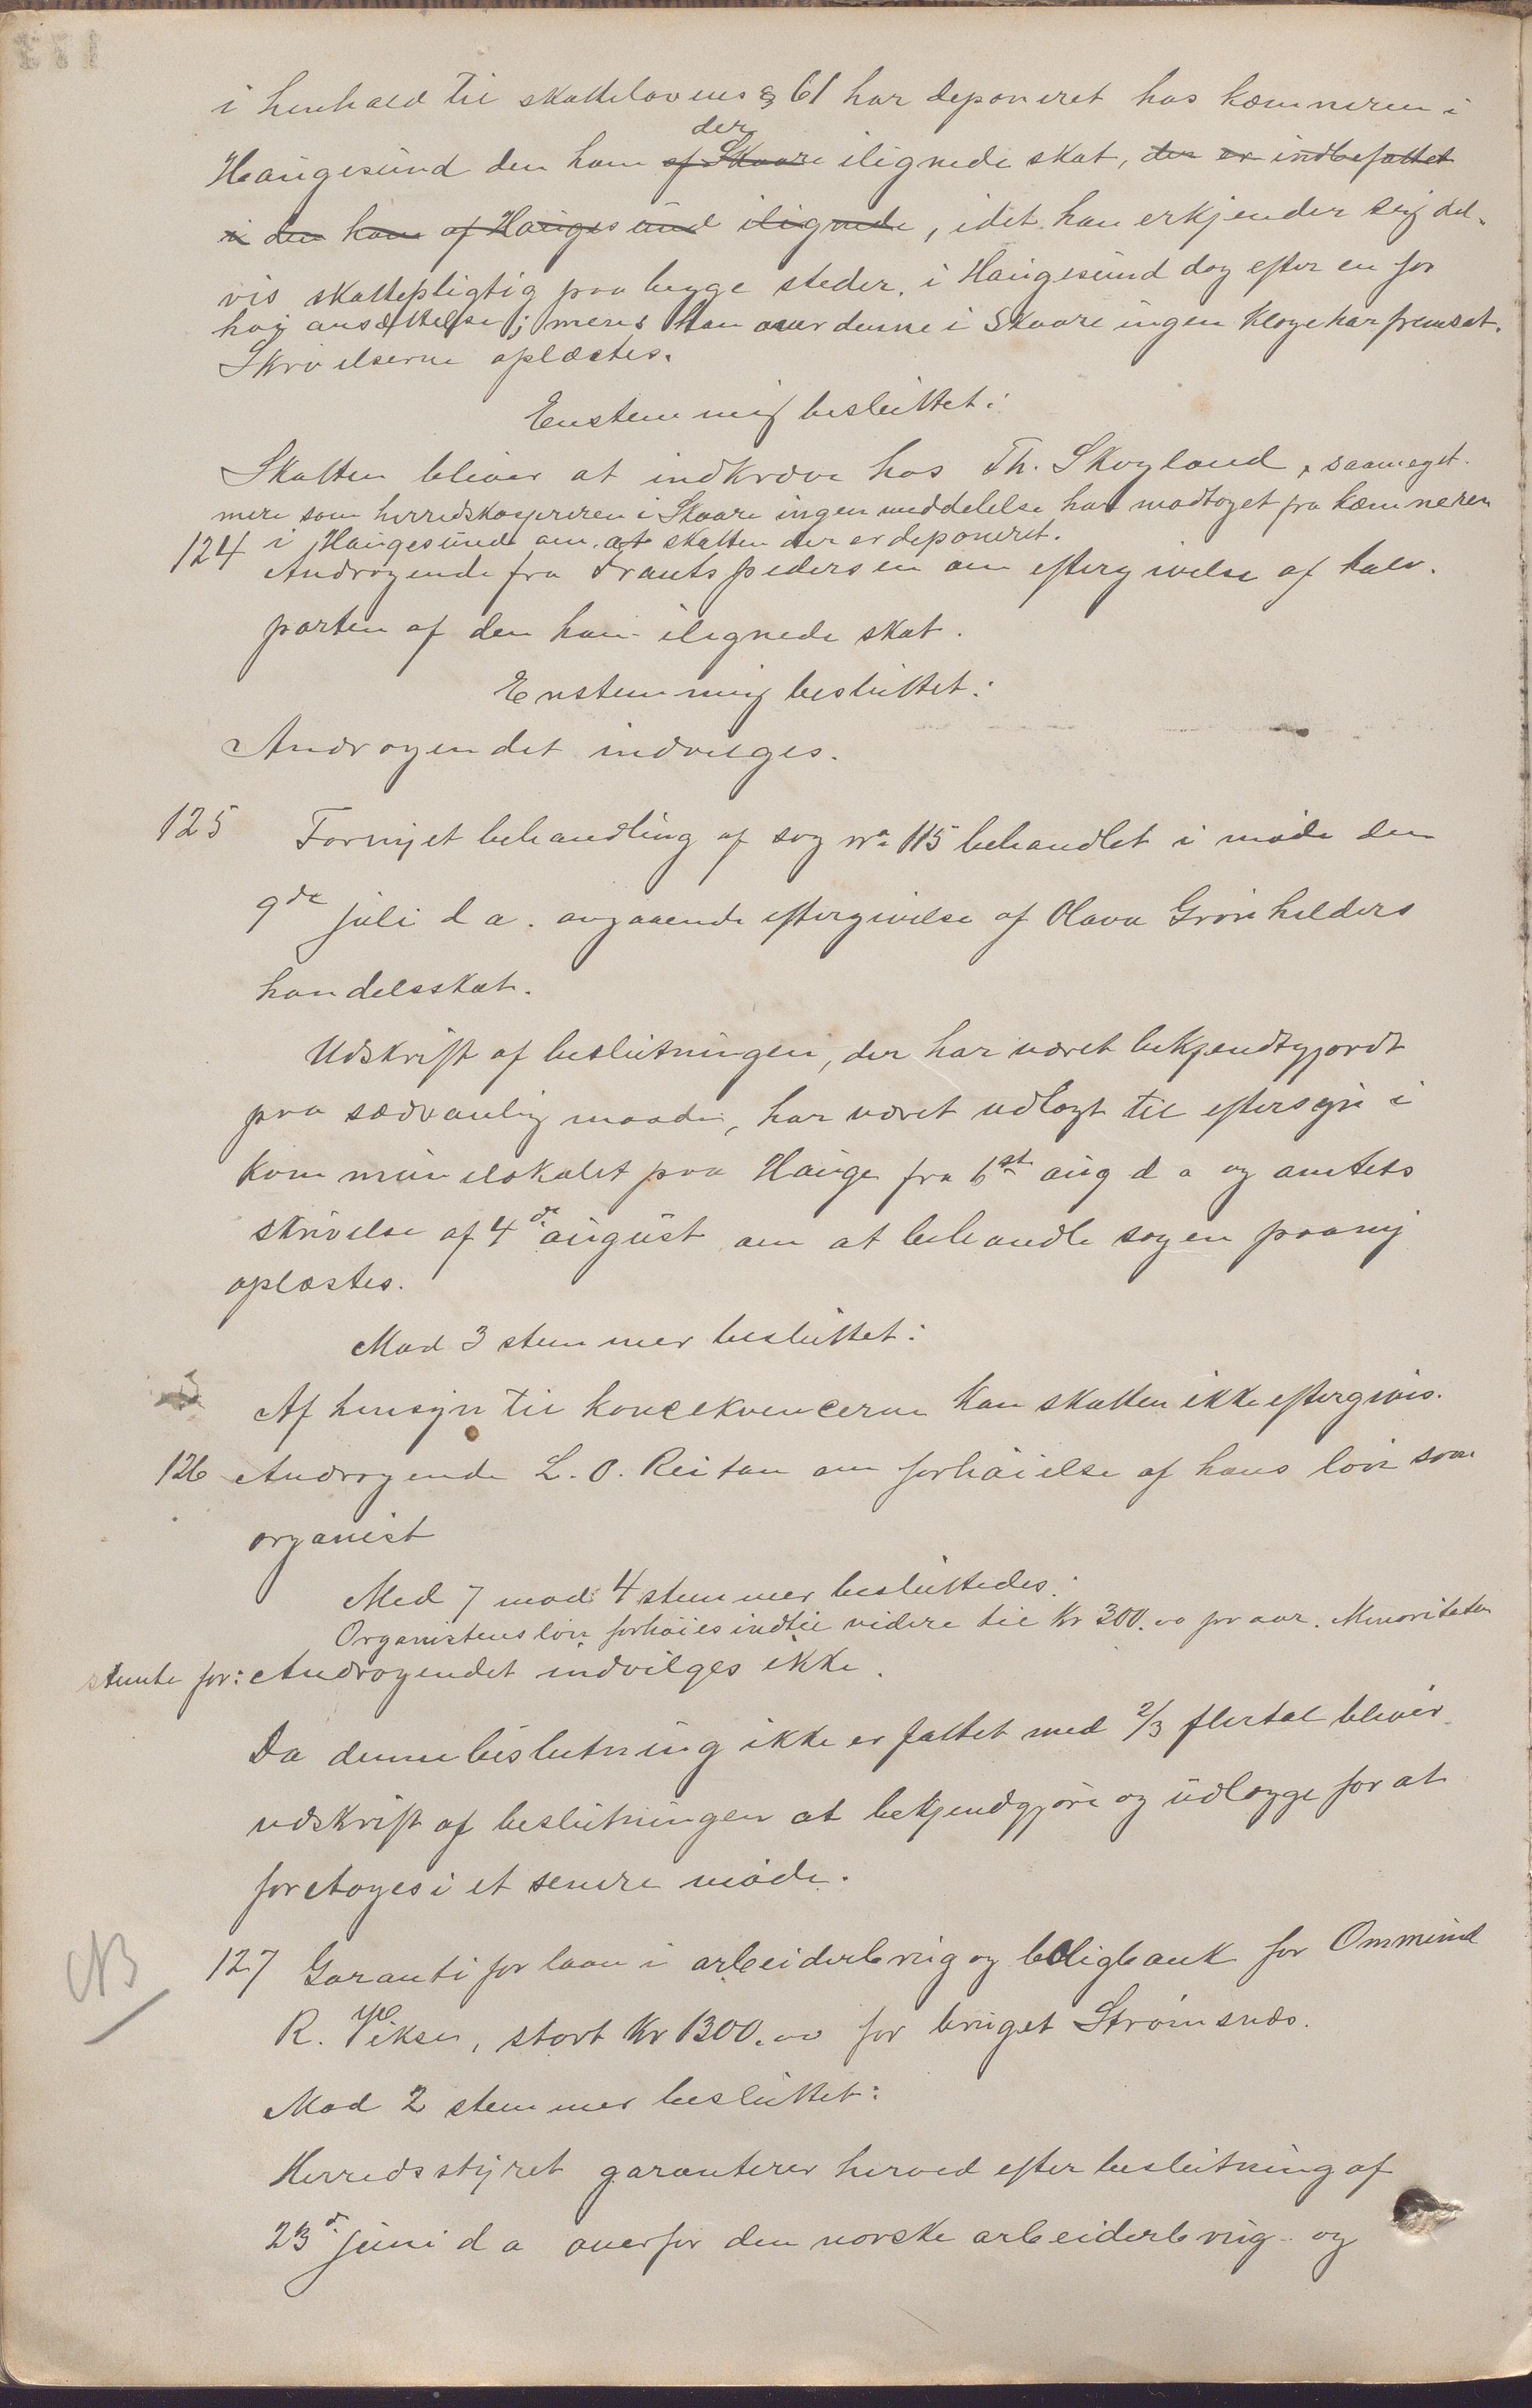 i henhold til skattelovens § 61 har deponeret hos kæmneren i
Haugesund den ham af Skaare der ilignede skat, der er indbefattet
i den ham af Haugesund ilignede, idet han erkjender sig del-
vis skattepligtig paa begge steder, i Haugesund dog efter en for
høi ansættelse; mens han over denne i Skaare ingen klage har fremsat.
Skrivelserne oplæstes.
Enstemmig besluttet:
Skatten bliver at indkræve hos Th. Skogland, saameget
mere som herredskassereren i Skaare ingen meddelelse har modtaget fra kæmneren
i Haugesund om at skatten der er deponeret.
124 Andragende fra Frants Pedersen om eftergivelse af halv-
parten af den ham ilignede skat.
Enstemmig besluttet:
Andragendet indvilges.
125 Fornyet behandling af sag nr 115 behandlet i møde den
9de juli d a. angaaende eftergivelse af Olava Grønhilders
handelsskat.
Udskrift af beslutningen, der har været bekjendtgjordt
paa sædvanlig maade, har været udlagt til eftersyn i
kommunelokalet paa Hauge fra 6st aug d a og amtets
skrivelse af 4de august om at behandle sagen paany
oplæstes.
Mod 3 stemmer besluttet:
Af hensyn til koncekvencerne kan skatten ikke eftergives.
126 Andragende L. O. Reitan om forhøielse af hans løn som
organist
Med 7 mod 4 stemmer besluttedes:
Organistens løn forhøies indtil videre til Kr 300.00 pr aar. Minoriteten
stemte for: Andragendet indvilges ikke.
Da denne beslutning ikke er fattet med 2/3 flertal bliver
udskrift af beslutningen at bekjendgjøre og udlægge for at
foretages i et senere møde.
NB
127 Garanti for laan i arbeiderbrug og boligbank for Ommund
R. Viksen, stort Kr 1300.00 for bruget Strømsnes.
Mod 2 stemmer besluttet:
Herredsstyret garanterer herved efter beslutning af
23d juni d a overfor den norske arbeiderbrug- og